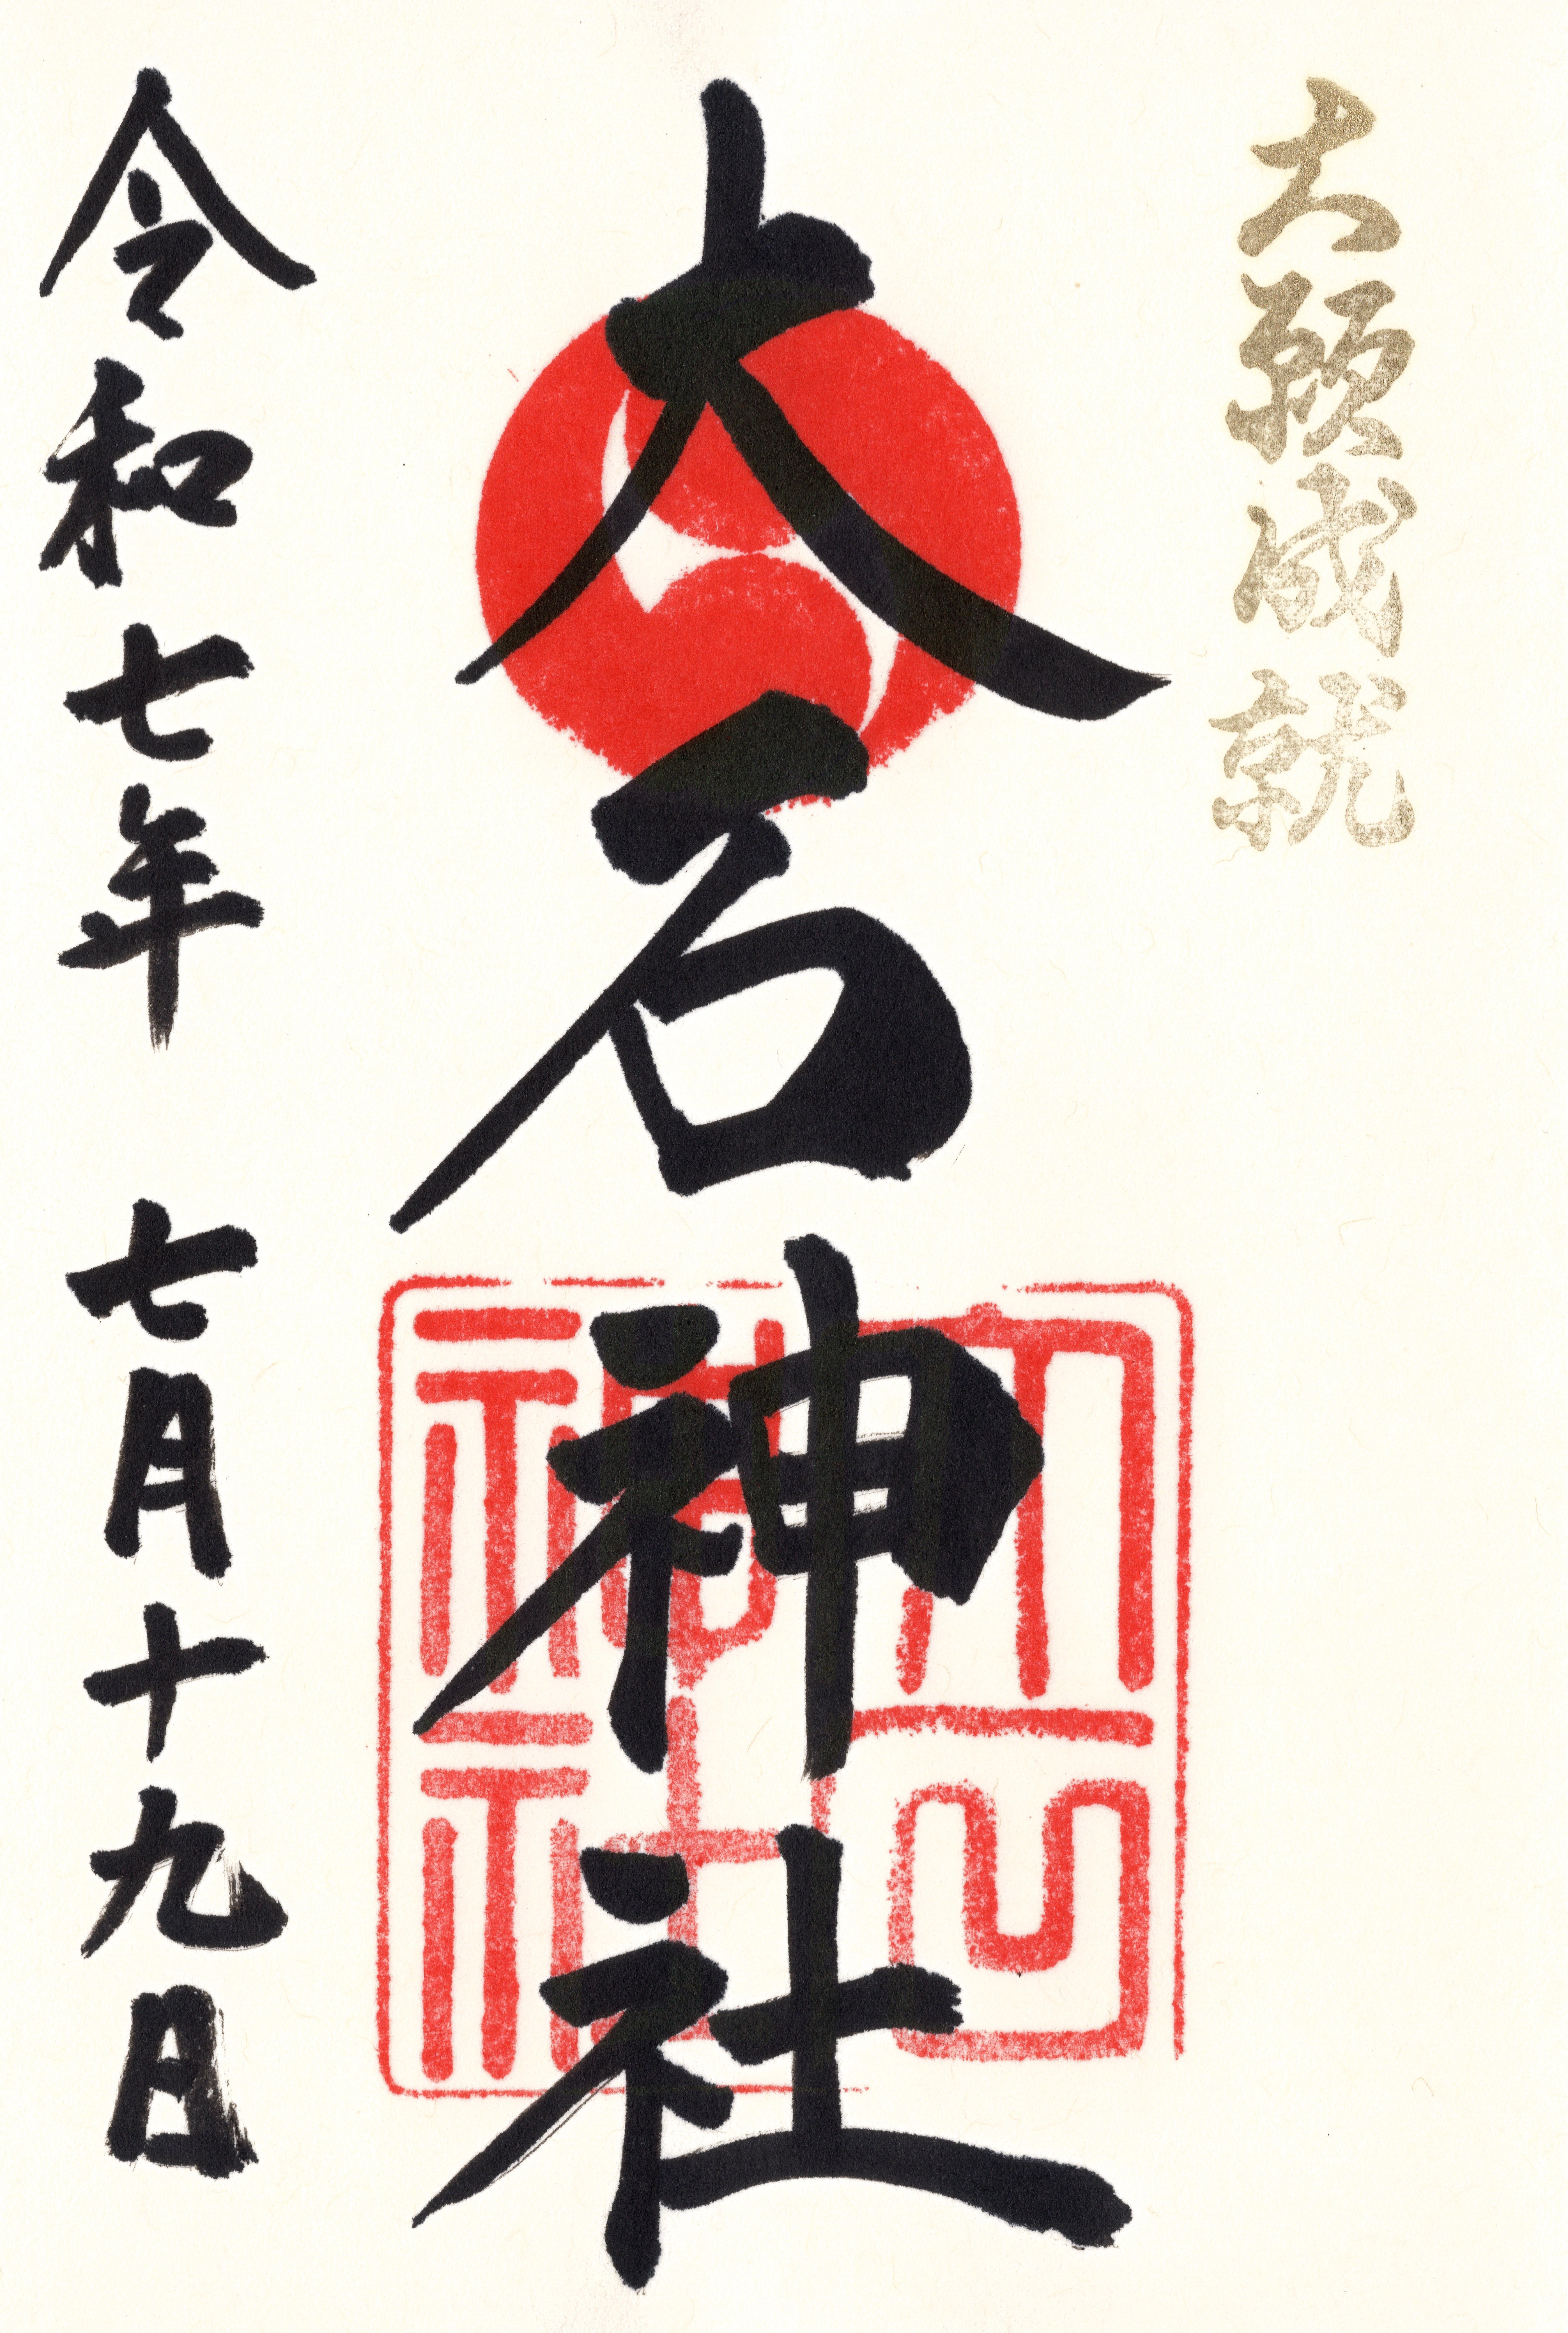 大願成就
大石神社
大石神社
令和七年 七月十九日